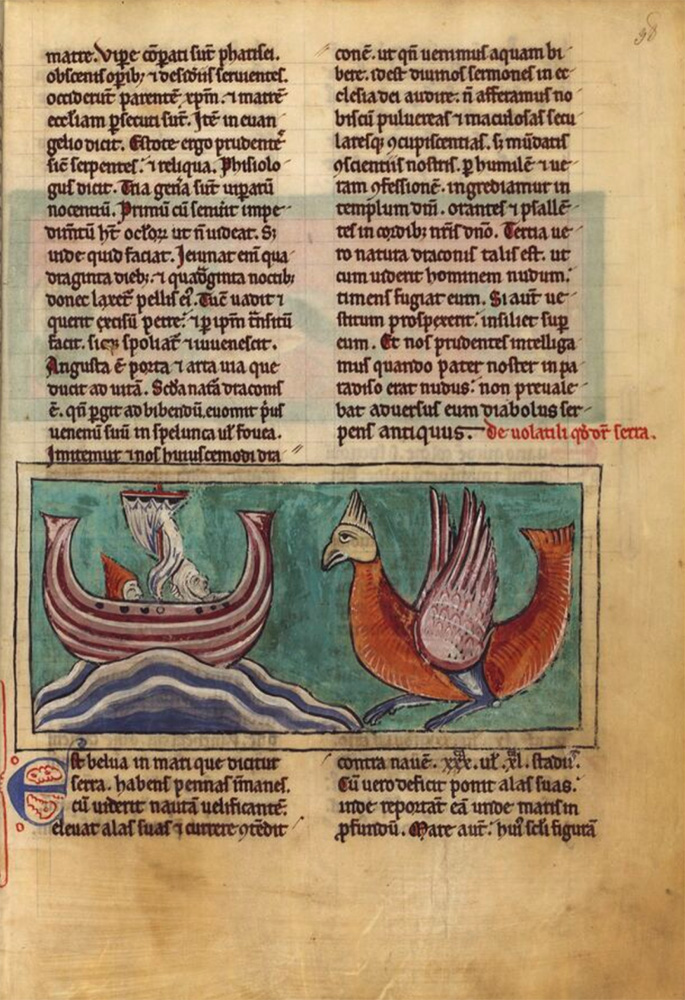 matre. Vipe cōpati sūt pharisei.
obscenis opib; ⁊ descōriis seruientes.
occiderūt parentē xpm̄. ⁊ matrē
eccliam psecuti sūt. Itē in euan
gelio dicit. Estote ergo prudentē
sic̄ serpentes. ⁊ reliqua. Phisiolo
gus dicit. Tria gen̄a sūt uiparū
nocentiū. Primū cū senuit impe
dimtū ht oclor ut n̄ uideat. S;
uide quid faciat. Ieiunat eni qua
draginta dieb; ⁊ quadginta noctib;
donec laxet pellis ei. Tuc uadit ⁊
querit excisū petre. ⁊ p ipm tnsitū
facit. sicq; spoliat ⁊ iuuenescit.
Angusta ē porta ⁊ arta uia que
ducit ad uitā. Scda natā draconis
ē. qn pgit ad bibendū. euomit pus
uenenū suū in spelunca ul fouea.
Imitemur ⁊ nos huiuscemodi dra
conē. ut qn uenimus aquam bi
bere. idest diuinos sermones in ec
clesia dei audire. n̄ afferamus no
biscū puluereas ⁊ maculosas secu
laresq; ꝯcupiscentias. s; mūdatis
ꝯscientiis nostris. p humilē ⁊ ue
ram ꝯfessionē. ingrediamur in
templum dni. orantes ⁊ psallē
tes in cordib; nris dno. Tertia ue
ro natura draconis talis est. ut
cum uiderit hominem nudum.
timens fugiat eum. Si aut ue
stitum prospexerit. insiliet sup
eum. Et nos prudentes intelliga
mus quando pater noster in pa
radiso erat nudus. non preuale
bat aduersus eum diabolus ser
pens antiquus. De uolatili qd dr serra.
Est belua in mari que dicitur
serra. habens pennas īmanes.
cū uiderit nautā uelificantē.
eleuat alas suas ⁊ currere ꝯtēdit
contra nauē. xxx. ul. xl. stadiū.
Cū uero deficit ponit alas suas.
unde reportat eā unde maris in
pfundū. Mare aut. hui scli figurā